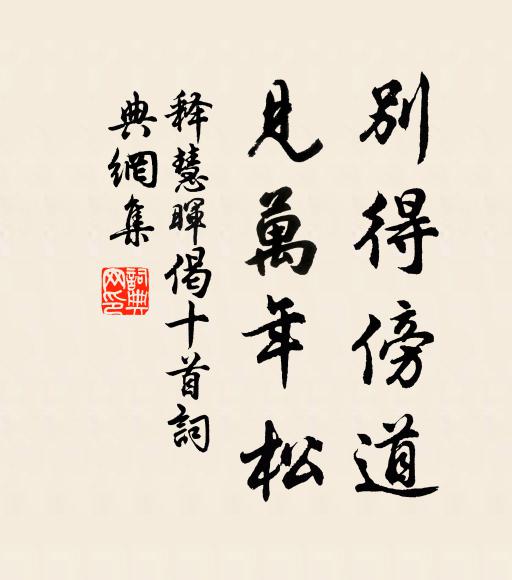 別得傍道
見萬年松
释慧暉偈十首詞
典網集
詞典
网印